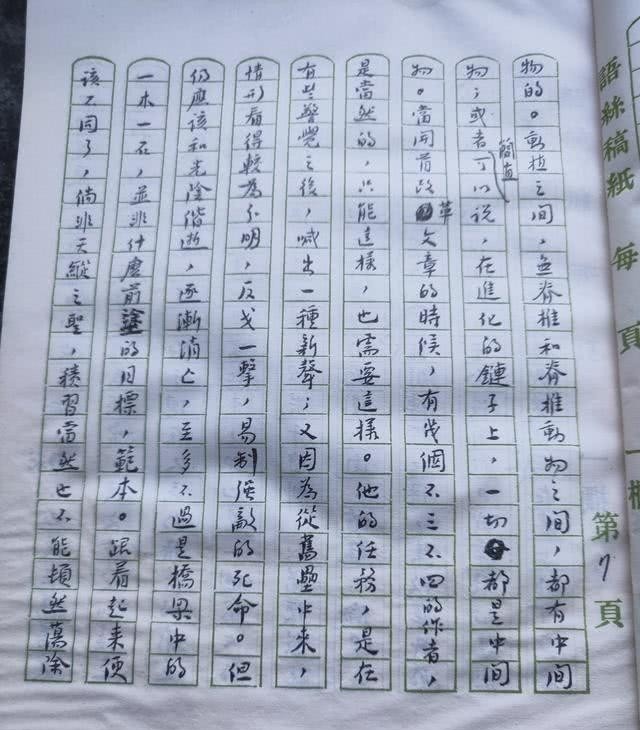 語絲稿紙 每頁一
第7頁
物的。動植之間,無脊椎和脊椎動物之間,都有中間
物;或者簡直可以说,在進化的鏈子上,一切都是中間
物。當開首改革文章的時候,有幾個不三不四的作者,
是當然的,只能這樣,也需要這樣。他的任務,是在
有些警覺之後,喊出一種新聲;又因為從舊壘中來,
情形看得較為分明,反戈一擊,易制強敵的死命。但
仍應該和光陰偕逝,逐漸消亡,至多不過是橋梁中的
一木一石,並非什麼前塗的目標,範本。跟着起來便
該不同了,倘非天縱之聖,積習當然也不能頓然蕩除